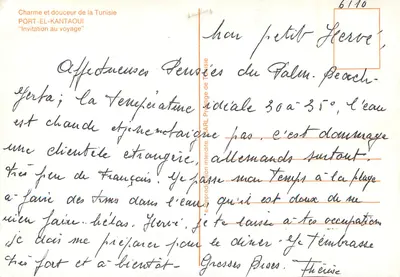 Charme et douceur de la Tunisie
PORT-EL-KANTAOUI
"Invitation au voyage"
6/10
Mon petit Hervé,
Affectueuses Pensées du Palm-Beach-
Jerba; la température idéale 30 à 35°, l'eau
est chaude et je ne nage pas, c'est dommage
une clientèle étrangère, allemands surtout-
très peu de français. Je passe mon temps à la plage
à faire des tours dans l'eau, qu'il est doux de ne
rien faire - hélas. Hervé, je te laisse à tes occupations
je dois me préparer pour le dîner - Je t'embrasse
très fort et à bientôt - Grosses Bises. Thérèse